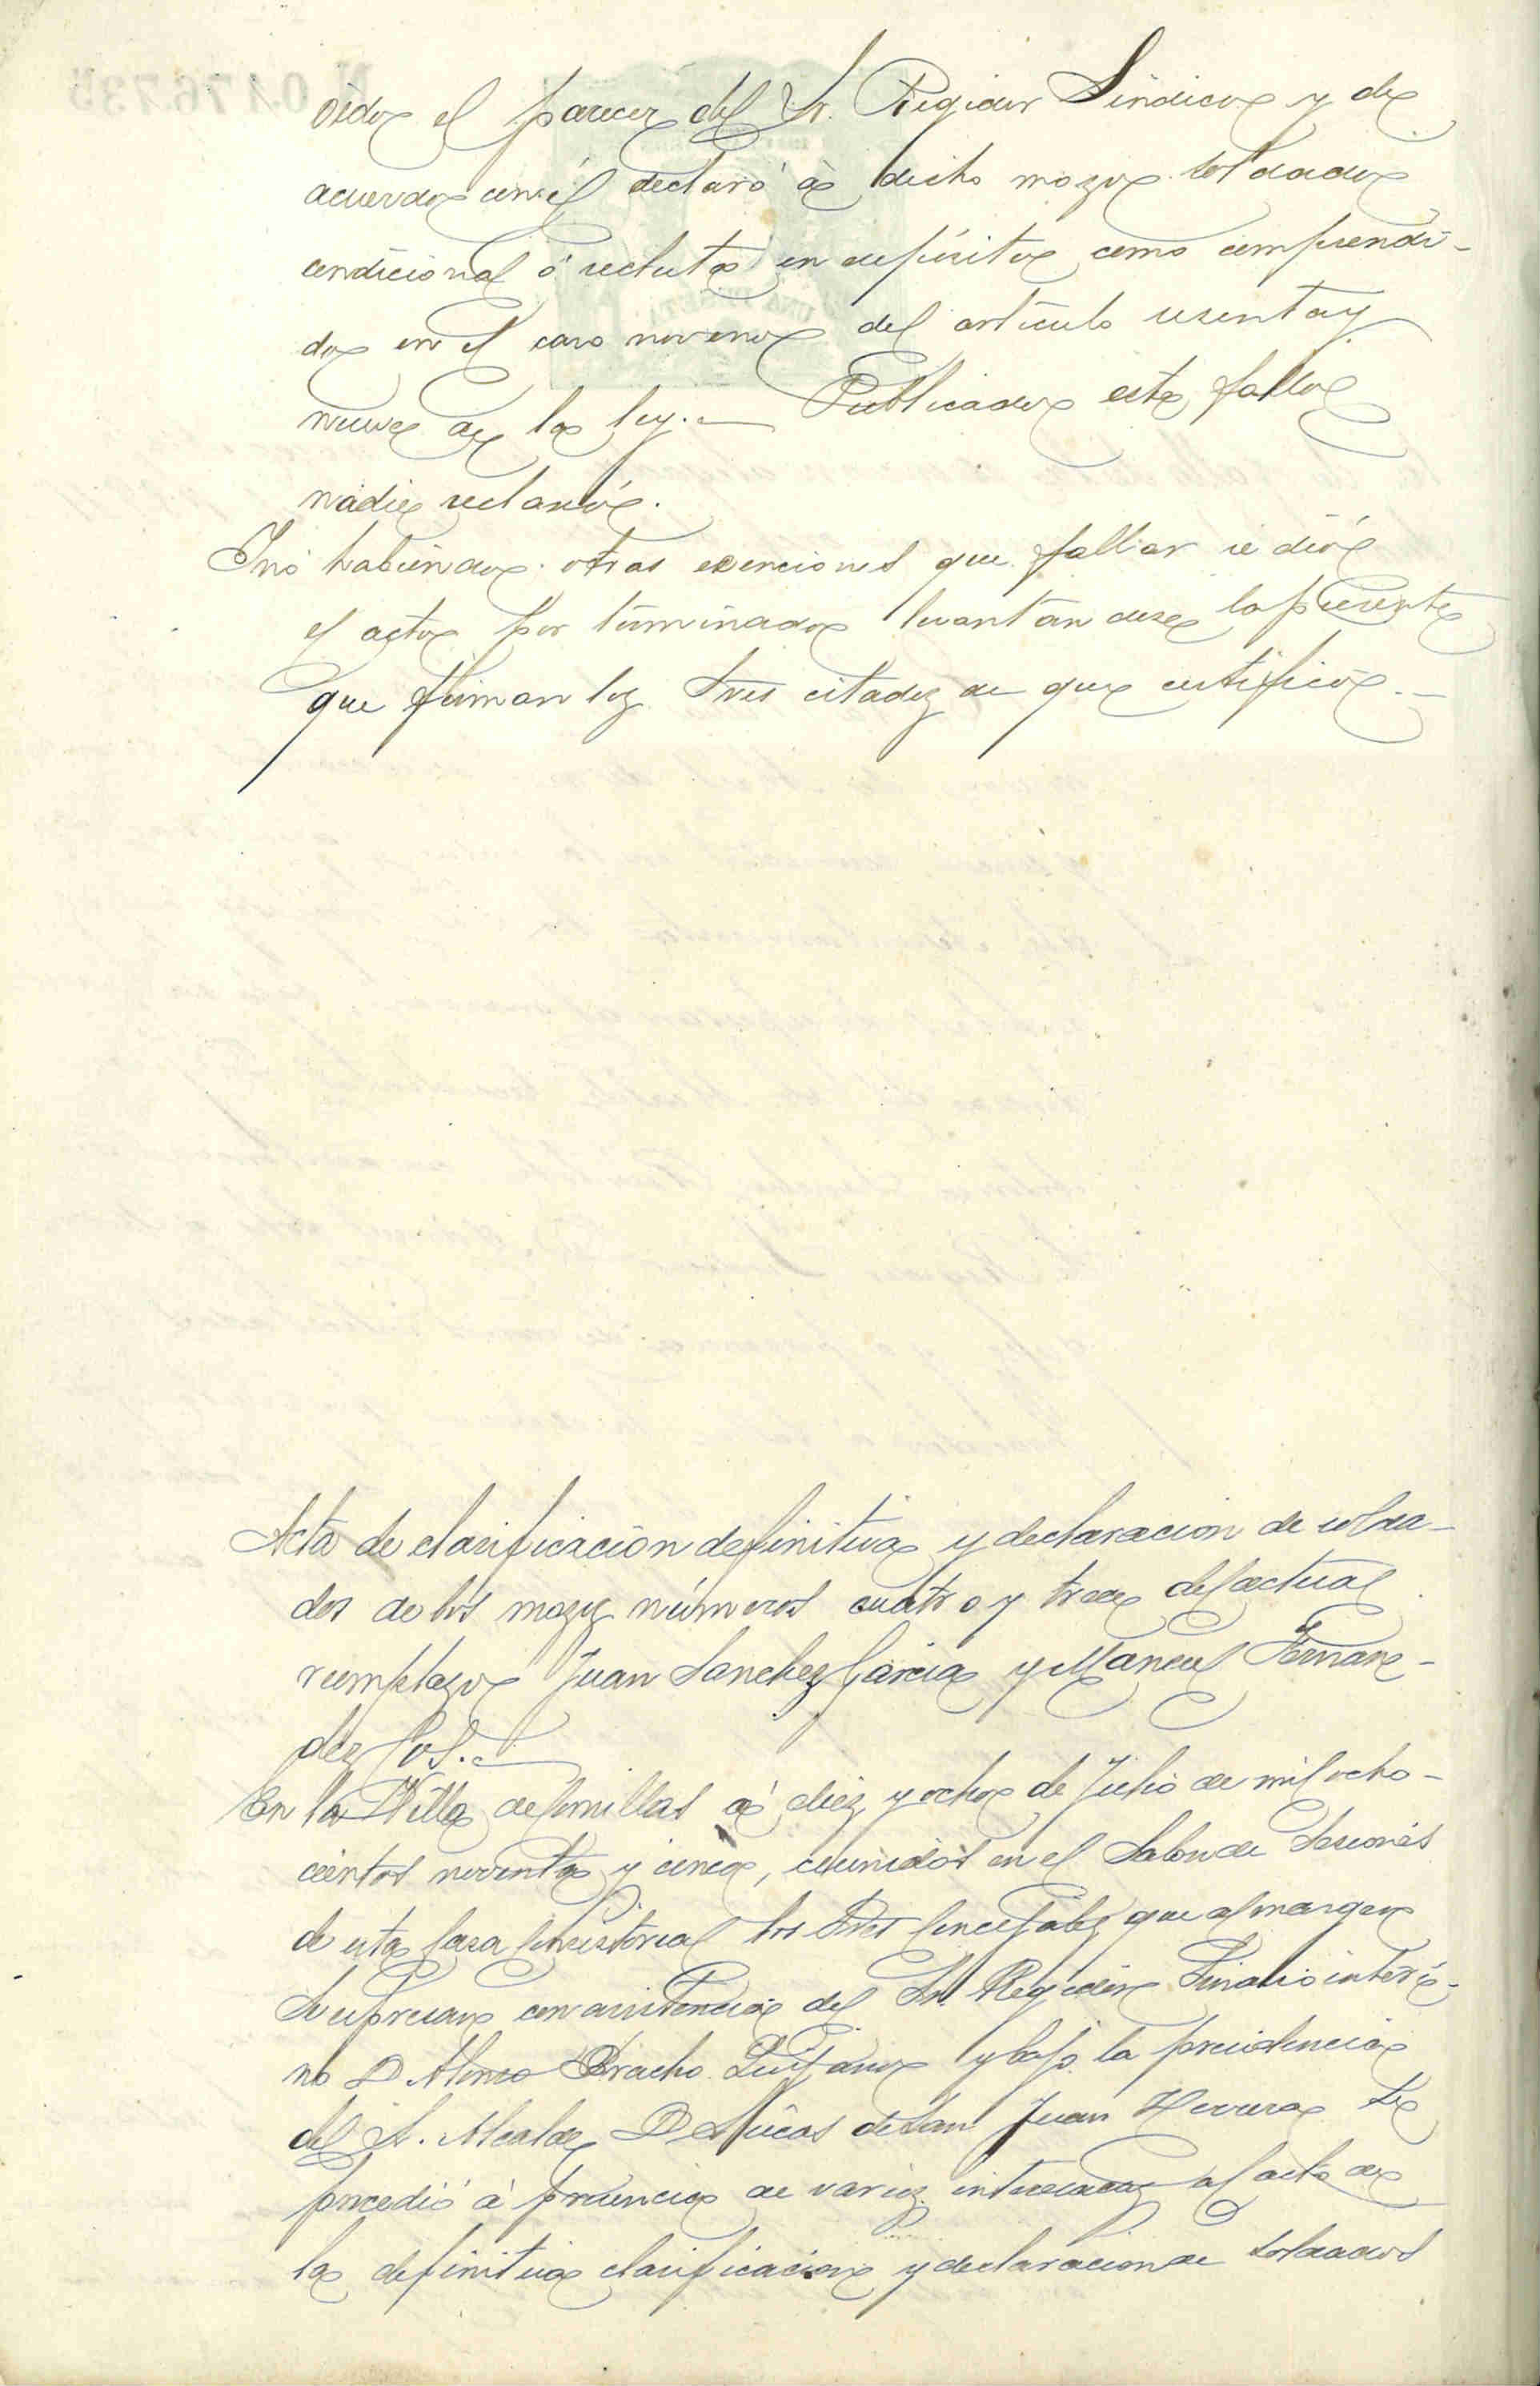 oido el parecer del Sr. Regidor Sindico y de
acuerdo con él declaró á dicho mozo soldado
condicional ó recluta en depósito como comprendi-
do en el caso noveno del artículo sesenta y
nueve de la ley.— Publicado este fallo
nadie reclamó.
Y nó habiendo otras exenciones que fallar se dió
el acto por terminado levantandose la presente
que firman los Sres citados de que certifico.—
Acta de clasificación definitiva y declaracion de solda-
dos de los mozos números cuatro y trece del actual
reemplazo Juan Sanchez Garcia y Manuel Fernan-
dez Cos.—
En la Villa de Comillas á diez y ocho de Julio de mil ocho-
cientos noventa y cinco, reunidos en el Salon de Sesiones
de esta Casa Consistorial los Sres Concejales que al margen
se expresan con asistencia del Sr. Regidor Sindico interi-
no D. Alonso Bracho Quijano y bajo la presidencia
del Sr. Alcalde D. Lucas de San Juan Herrera se
procedió á presencia de varios interesados al acto de
la definitiva clasificacion y declaracion de soldados